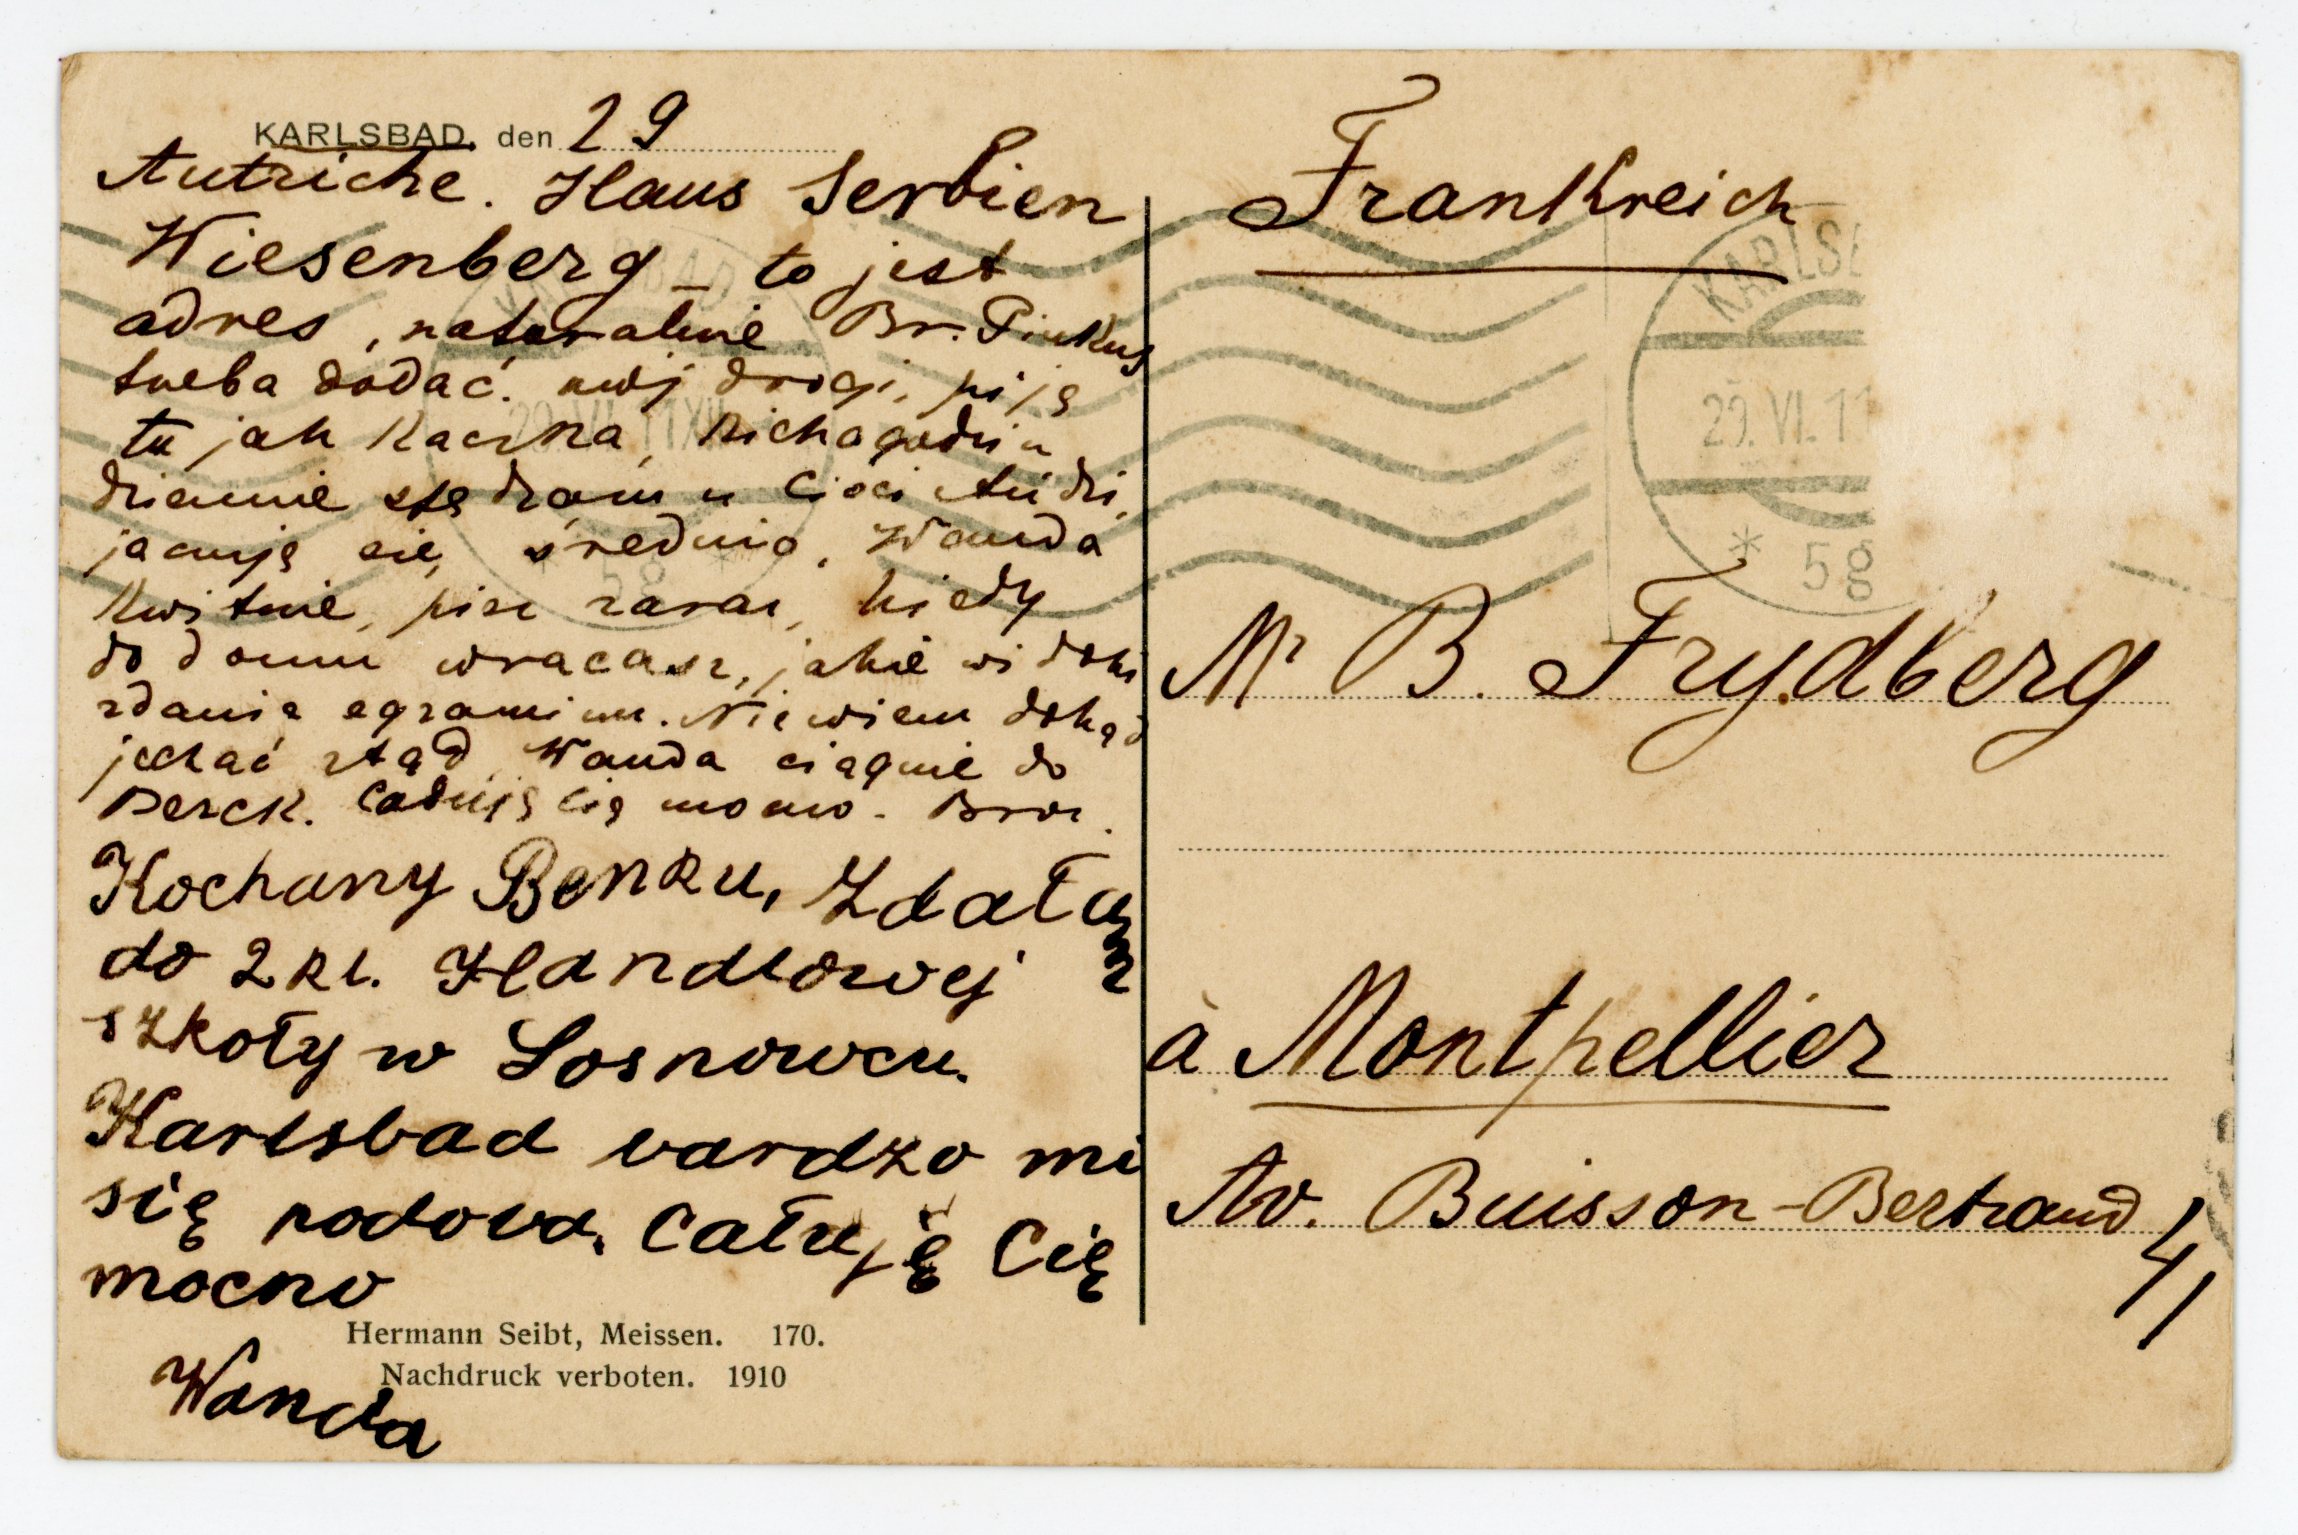 KARLSBAD, den 29
Autriche. Haus Serbien
Wiesenberg - to jest
adres, naturalnie Br. Pinkus
trzeba dodać. mój drogi, piję
tu jak Kaczka,
dziennie u Cioci
się średnio, Wanda
Kwitnie, pisz zaraz, kiedy
do domu wracasz, jakie widoki
zdania egzaminu. Nie wiem dokąd
jechać stąd, Wanda ciągnie do
Berck. Całuję Cię mocno - Bron.
Kochany Benku, Zdałam
do 2 kl. Handlowej
szkoły w Sosnowcu.
Karlsbad bardzo mi
się podoba. Całuję Cię
mocno
Wanda
Hermann Seibt, Meissen. 170.
Nachdruck verboten. 1910
Frankreich
KARLSB
29.VI.11
* 5g
Mr B. Frydberg
à Montpellier
Av. Buisson-Bertrand